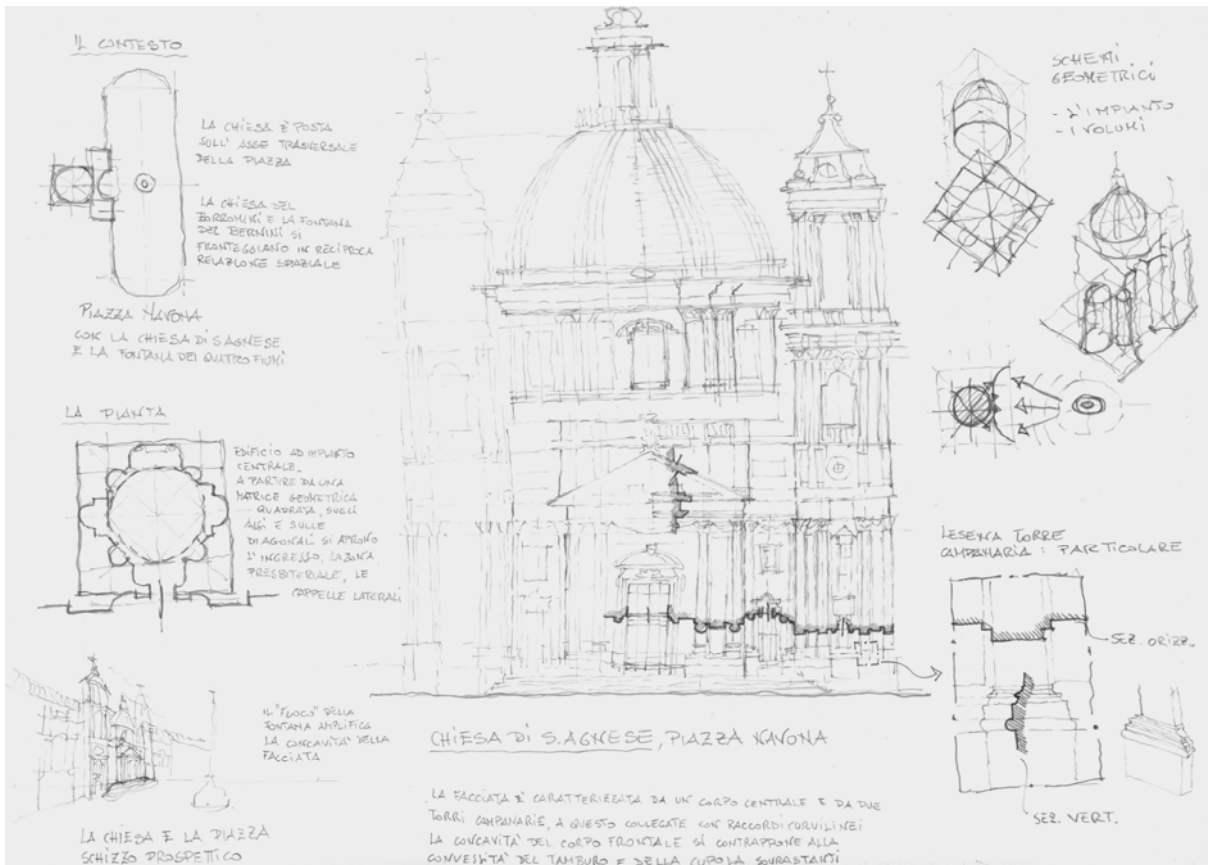 IL CONTESTO
LA CHIESA È POSTA
SULL' ASSE TRASVERSALE
DELLA PIAZZA
LA CHIESA DEL
BORROMINI E LA FONTANA
DEL BERNINI SI
FRONTEGGIANO IN RECIPROCA
RELAZIONE SPAZIALE
PIAZZA NAVONA
CON LA CHIESA DI S AGNESE
E LA FONTANA DEI QUATTRO FIUMI
LA PIANTA
EDIFICIO AD IMPIANTO
CENTRALE.
A PARTIRE DA UNA
MATRICE GEOMETRICA
QUADRATA, SUGLI
ASSI E SULLE
DIAGONALI SI APRONO
L'INGRESSO, LA ZONA
PRESBITERIALE, LE
CAPPELLE LATERALI
IL "FUOCO" DELLA
FONTANA AMPLIFICA
LA CONCAVITA' DELLA
FACCIATA
LA CHIESA E LA PIAZZA
SCHIZZO PROSPETTICO
CHIESA DI S. AGNESE, PIAZZA NAVONA
LA FACCIATA E' CARATTERIZZATA DA UN CORPO CENTRALE E DA DUE
TORRI CAMPANARIE, A QUESTO COLLEGATE CON RACCORDI CURVILINEI
LA CONCAVITÀ DEL CORPO FRONTALE SI CONTRAPPONE ALLA
CONVESSITÀ DEL TAMBURO E DELLA CUPOLA SOVRASTANTI
SCHEMI
GEOMETRICI
- L'IMPIANTO
- I VOLUMI
LESENA TORRE
CAMPANARIA : PARTICOLARE
SEZ. ORIZZ.
SEZ. VERT.